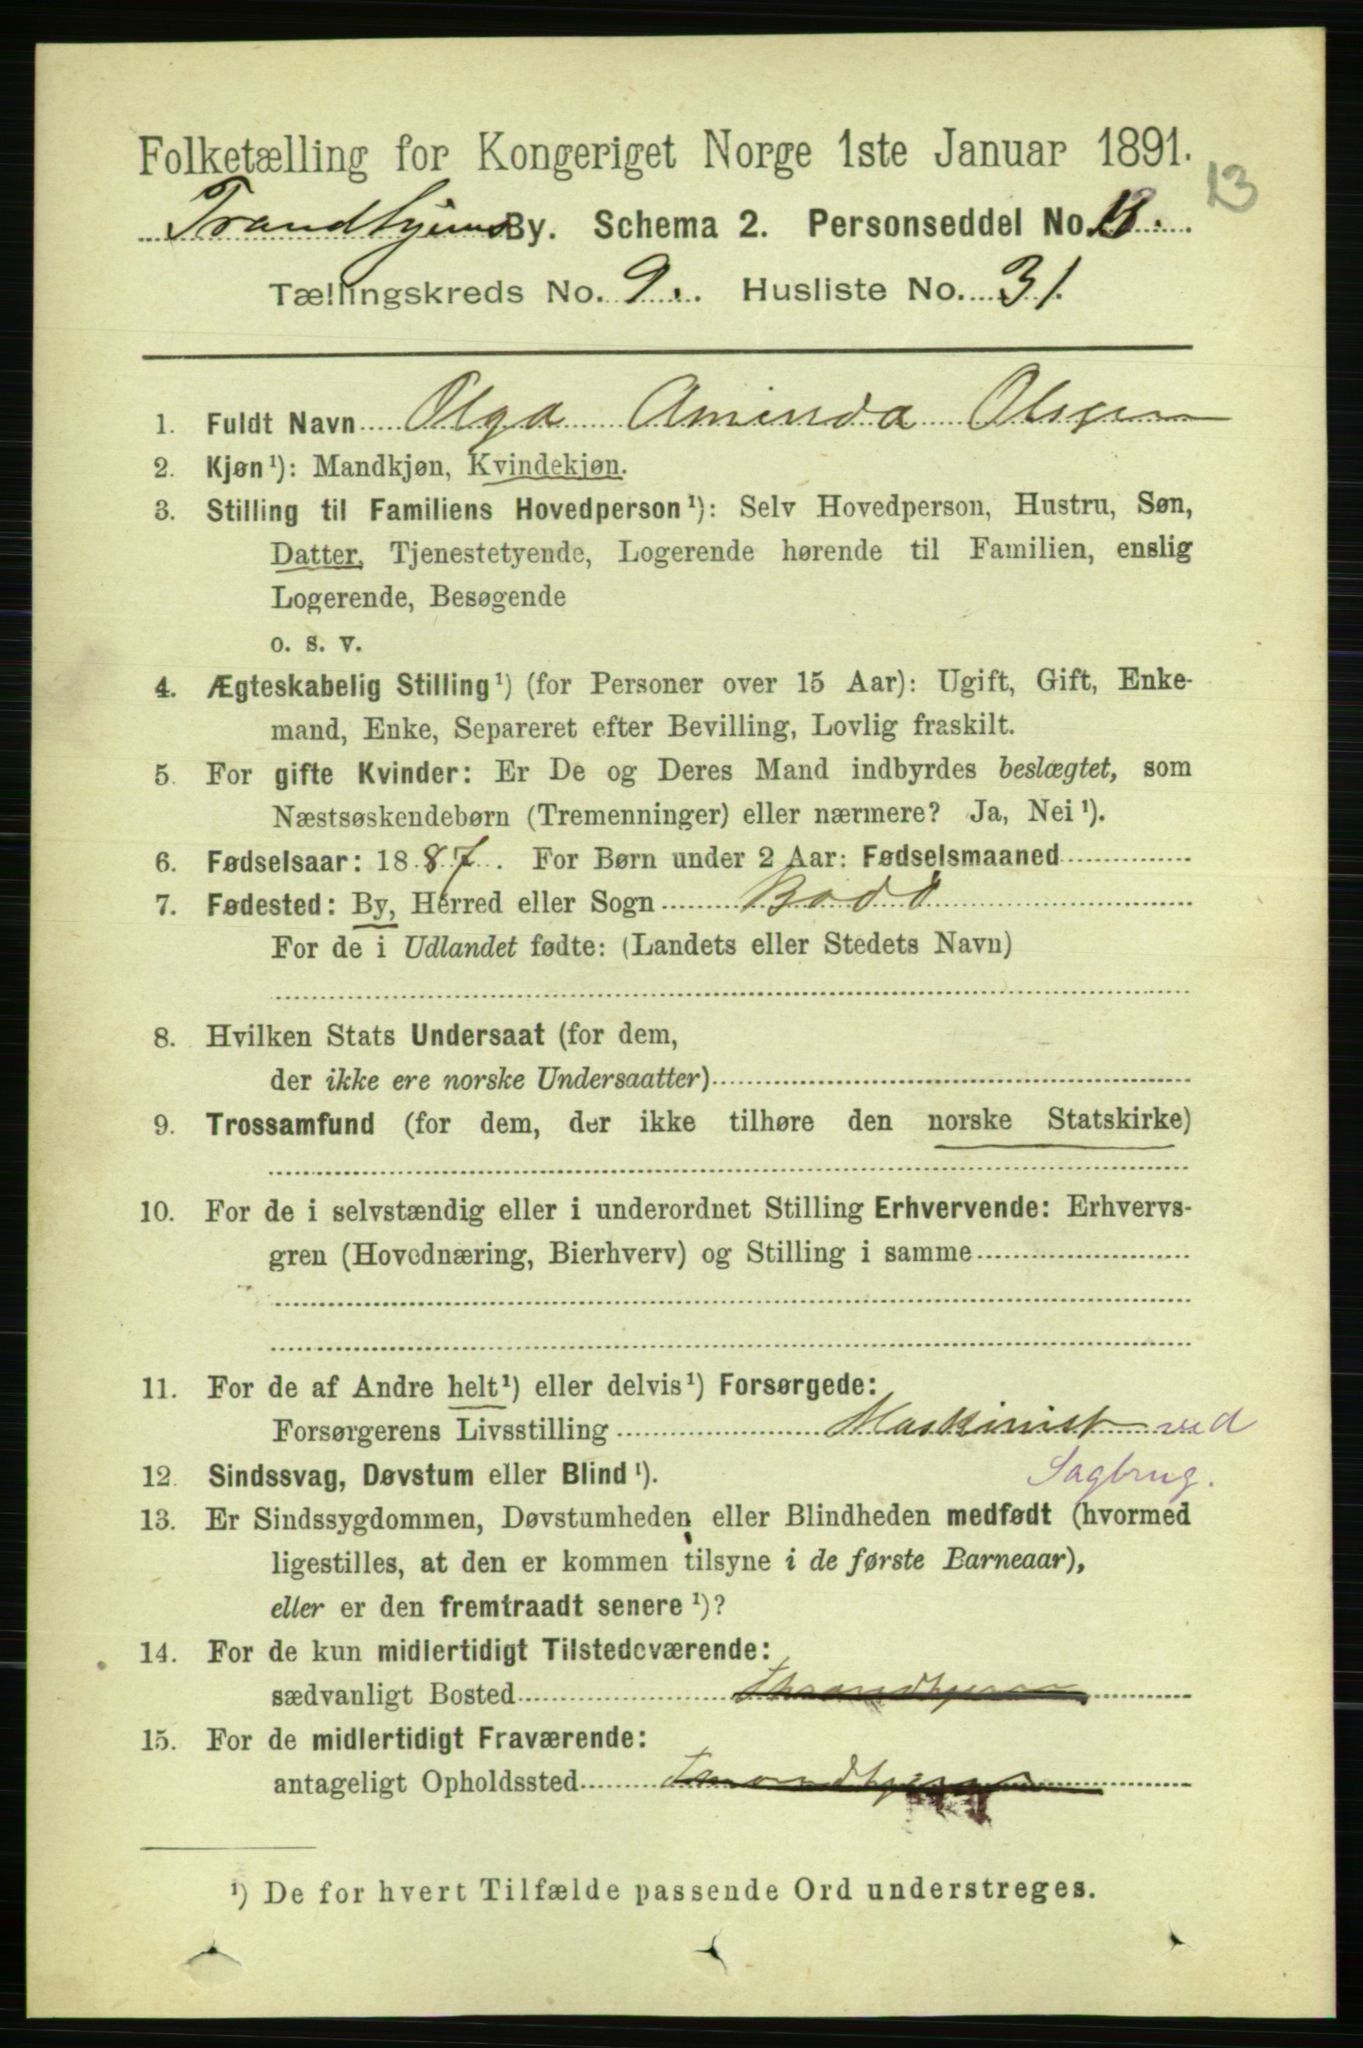 Folketælling for Kongeriget Norge 1ste Januar 1891.
13
Trondhjems By. Schema 2. Personseddel No. 13.
Tællingskreds No. 9. Husliste No. 31.
1. Fuldt Navn Olga Aminda Olsen
2. Kjøn ¹): Mandkjøn, Kvindekjøn.
3. Stilling til Familiens Hovedperson ¹): Selv Hovedperson, Hustru, Søn,
Datter, Tjenestetyende, Logerende hørende til Familien, enslig
Logerende, Besøgende
o. s. v.
4. Ægteskabelig Stilling ¹) (for Personer over 15 Aar): Ugift, Gift, Enke-
mand, Enke, Separeret efter Bevilling, Lovlig fraskilt.
5. For gifte Kvinder: Er De og Deres Mand indbyrdes beslægtet, som
Næstsøskendebørn (Tremenninger) eller nærmere? Ja, Nei ¹).
6. Fødselsaar: 1887. For Børn under 2 Aar: Fødselsmaaned
7. Fødested: By, Herred eller Sogn Bodø
For de i Udlandet fødte: (Landets eller Stedets Navn)
8. Hvilken Stats Undersaat (for dem,
der ikke ere norske Undersaatter)
9. Trossamfund (for dem, der ikke tilhøre den norske Statskirke)
10. For de i selvstændig eller i underordnet Stilling Erhvervende: Erhvervs-
gren (Hovednæring, Bierhverv) og Stilling i samme
11. For de af Andre helt ¹) eller delvis ¹) Forsørgede:
Forsørgerens Livsstilling Maskinist ved
Sagbrug.
12. Sindssvag, Døvstum eller Blind ¹).
13. Er Sindssygdommen, Døvstumheden eller Blindheden medfødt (hvormed
ligestilles, at den er kommen tilsyne i de første Barneaar),
eller er den fremtraadt senere ¹)?
14. For de kun midlertidigt Tilstedeværende:
sædvanligt Bosted Thrandhjem
15. For de midlertidigt Fraværende:
antageligt Opholdssted
¹) De for hvert Tilfælde passende Ord understreges.